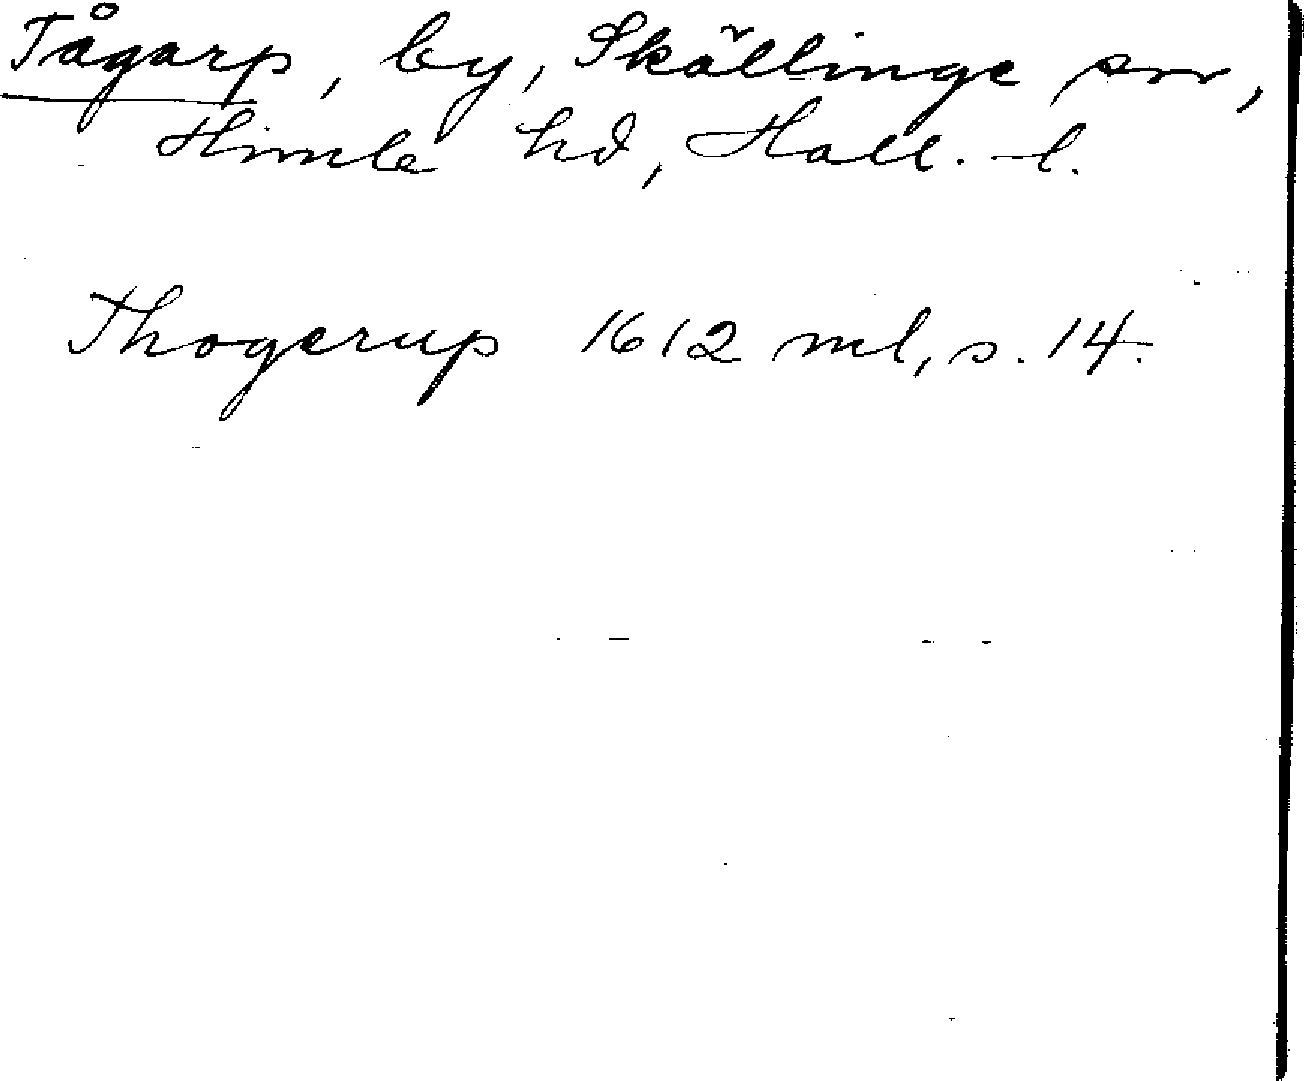 Tågarp, by, Skällinge sn,
Himle hd, Hall. l.
Thogerup 1612 ml, s. 14.